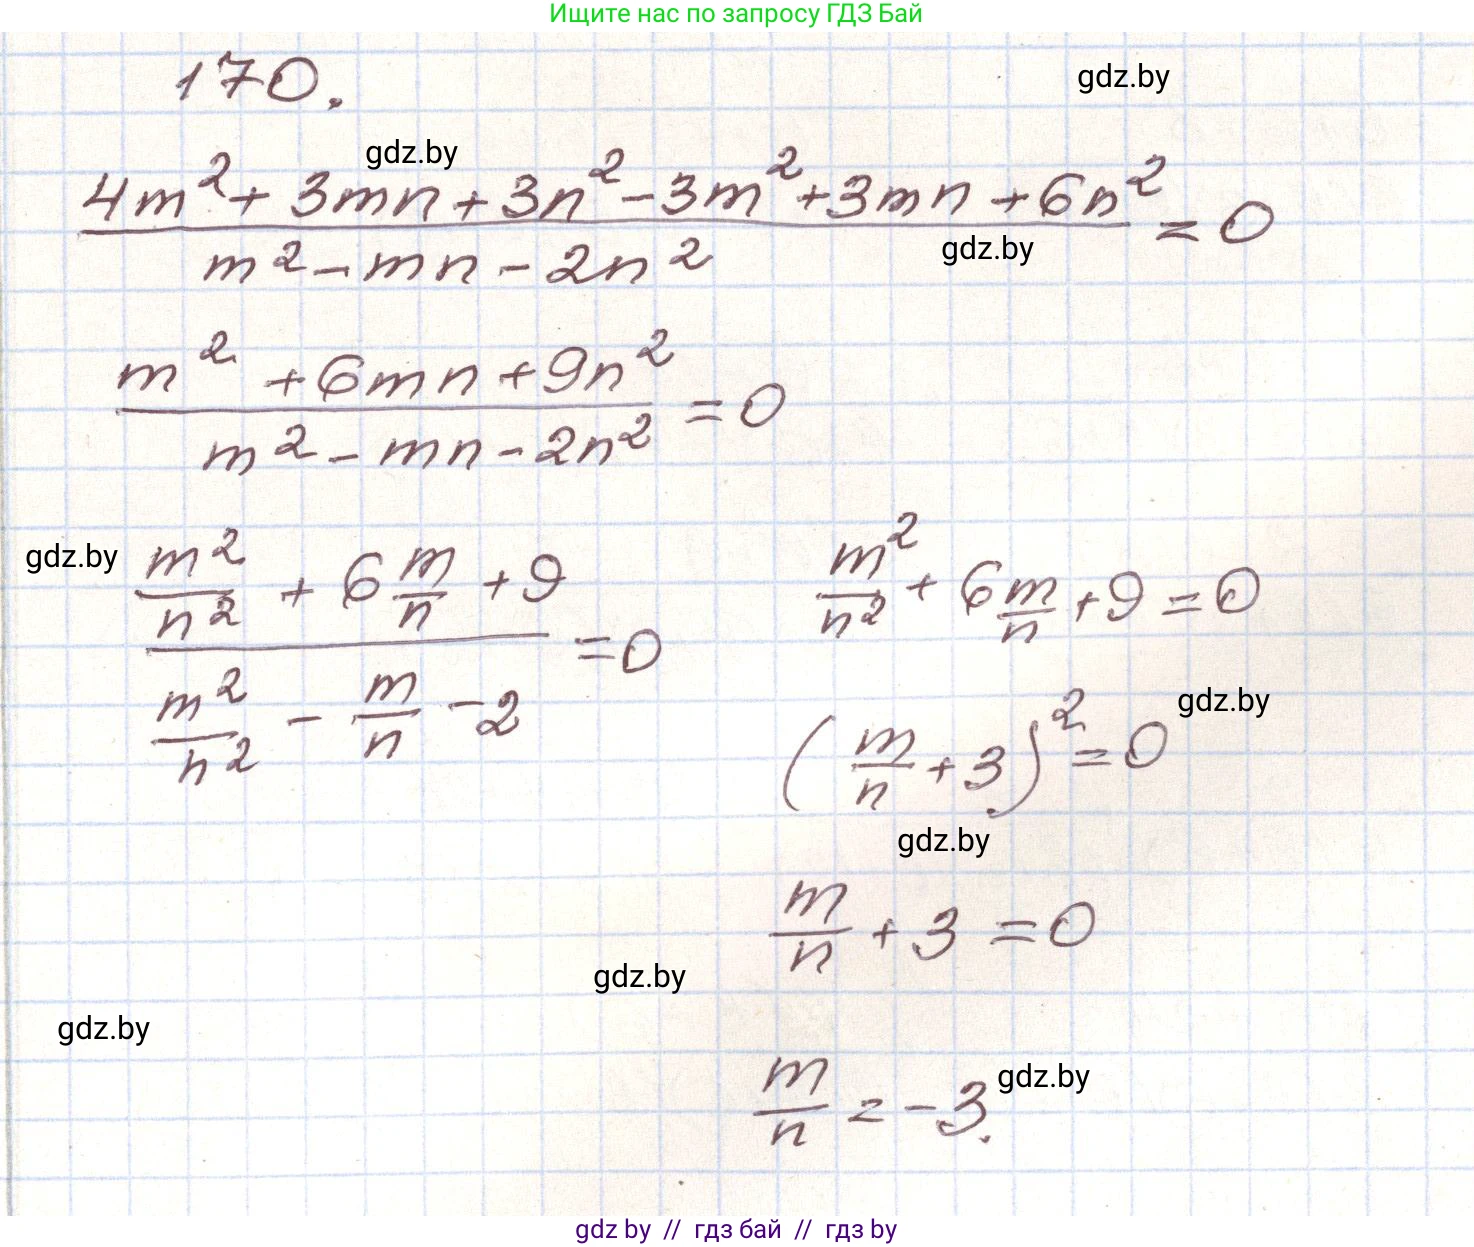 Ищите нас по запросу ГДЗ Бай
170.
gdz.by
gdz.by
\frac{4m^2 + 3mn + 3n^2 - 3m^2 + 3mn + 6n^2}{m^2 - mn - 2n^2} = 0
gdz.by
\frac{m^2 + 6mn + 9n^2}{m^2 - mn - 2n^2} = 0
gdz.by
\frac{\frac{m^2}{n^2} + 6\frac{m}{n} + 9}{\frac{m^2}{n^2} - \frac{m}{n} - 2} = 0
\frac{m^2}{n^2} + 6\frac{m}{n} + 9 = 0
gdz.by
(\frac{m}{n} + 3)^2 = 0
gdz.by
\frac{m}{n} + 3 = 0
gdz.by
gdz.by
\frac{m}{n} = -3.
gdz.by
gdz by // гдз бай // гдз by